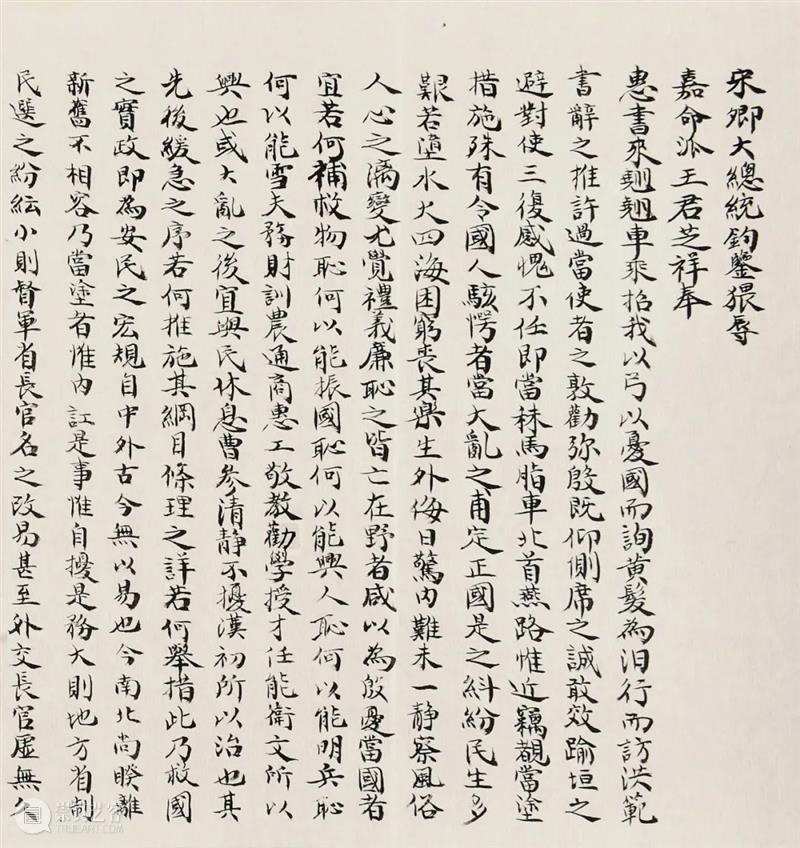 宋卿大總統鈞鑒猥辱
嘉命派王君芝祥奉
惠書來翹翹車乘招我以弓以憂國而詢黃髮為汨行而訪洪範
書辭之推許過當使者之敦勸弥殷既仰側席之誠敢效踰垣之
避對使三復感愧不任即當秣馬脂車北首燕路惟近竊覩當塗
措施殊有令國人駭愕者當大亂之甫定正國是之糾紛民生多
艱若墮水火四海困窮喪其樂生外侮日驚內難未一靜察風俗
人心之漓變尤覺禮義廉恥之皆亡在野者咸以為殷憂當國者
宜若何補救物恥何以能振國恥何以能興人恥何以能明兵恥
何以能雪夫務財訓農通商惠工敬教勸學授才任能衛文所以
興也或大亂之後宜與民休息曹參清靜不擾漢初所以治也其
先後緩急之序若何推施其綱目條理之詳若何舉措此乃救國
之實政即為安民之宏規自中外古今無以易也今南北尚睽離
新舊不相容乃當塗者惟內訌是事惟自擾是務大則地方省制
民選之紛紜小則督軍省長官名之改易甚至外交長官虛無人
崇真艺客
TRUEART.COM